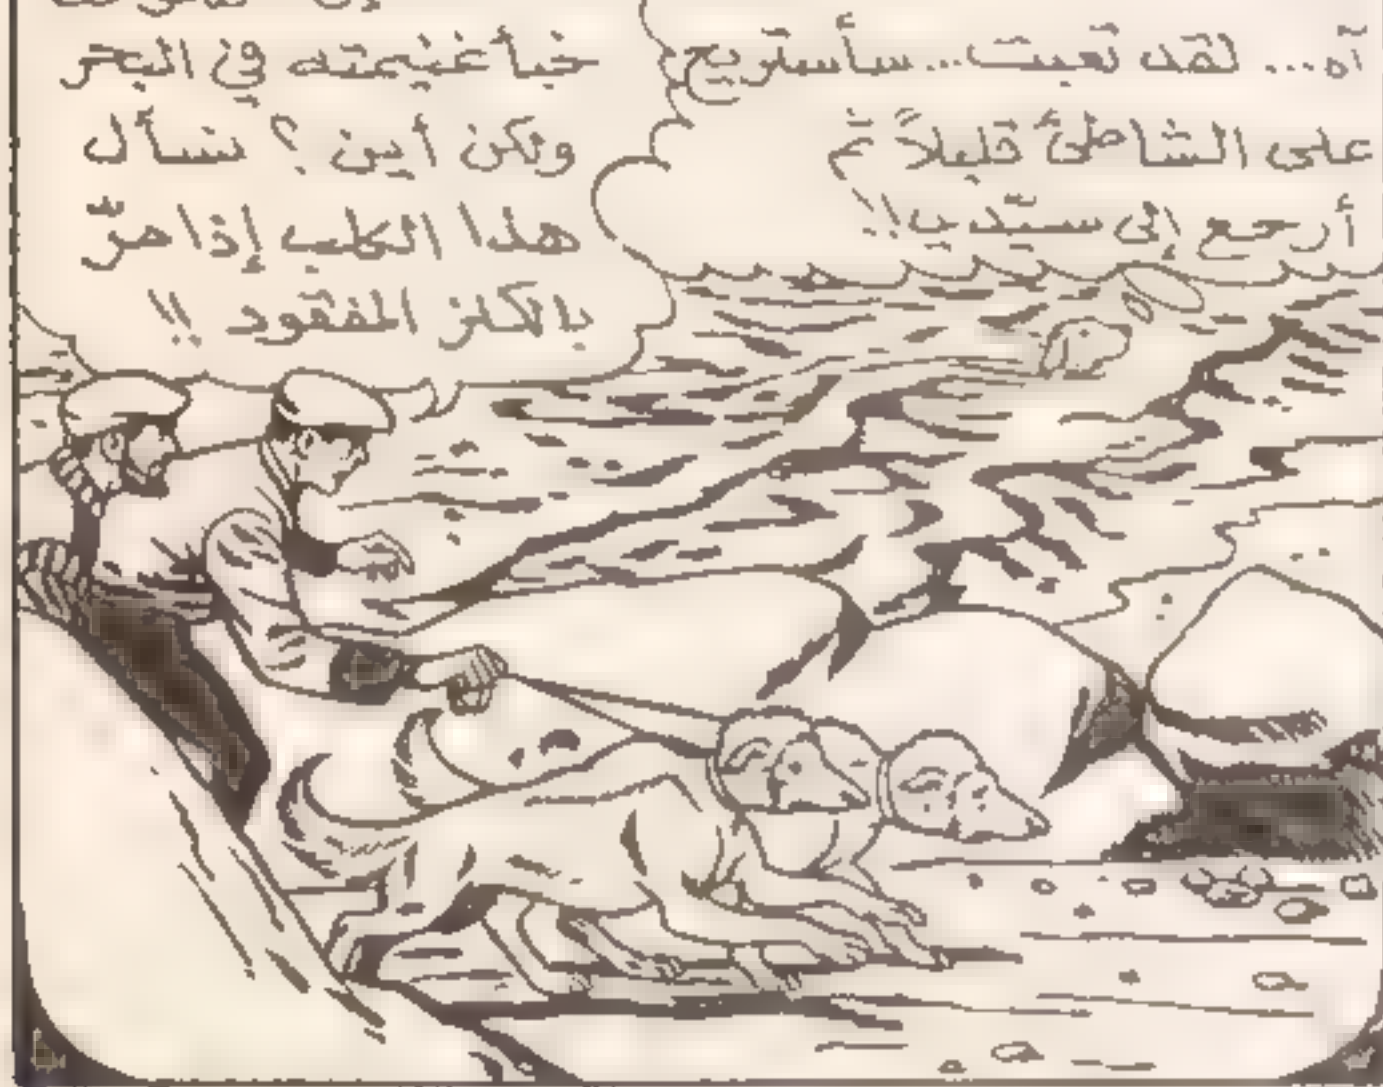 آه... لقد تعبت...سأستريح
على الشاطئ قليلاً ثم
أرجع إلى سيّدي!!
خبأ غنيمته في البحر
ولكن أين؟ نسأل
هذا الكلب إذا مرّ
بالكنز المفقود !!